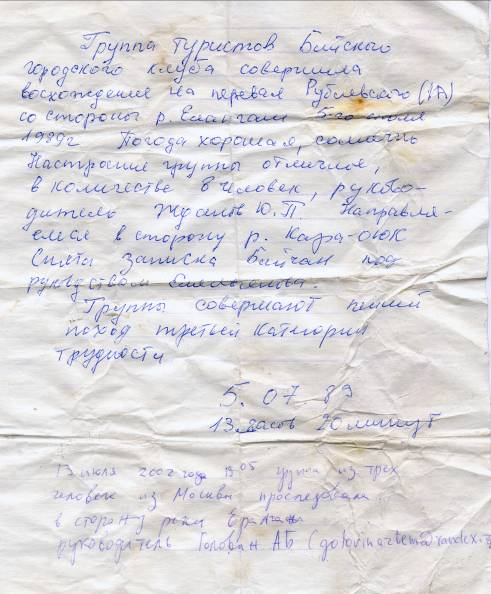 Группа туристов Бийского
городского клуба совершила
восхождение на перевал Рублевского (1А)
со стороны р. Елангаш 5-го июля
1989г Погода хорошая, солнечно
Настроение группы отличное,
в количестве 8 человек, руково-
дитель Жданов Ю.П. Направля-
емся в сторону р. Кара-Оюк
Снята записка Бийчан под
руководством
Группы совершают пеший
поход третьей категории
трудности
5. 07 89
13. часов 20 минут
13 июля 2002 года 13 05 группа из трех
человек из Москвы проследовала
в сторону реки
руководитель Голован АБ